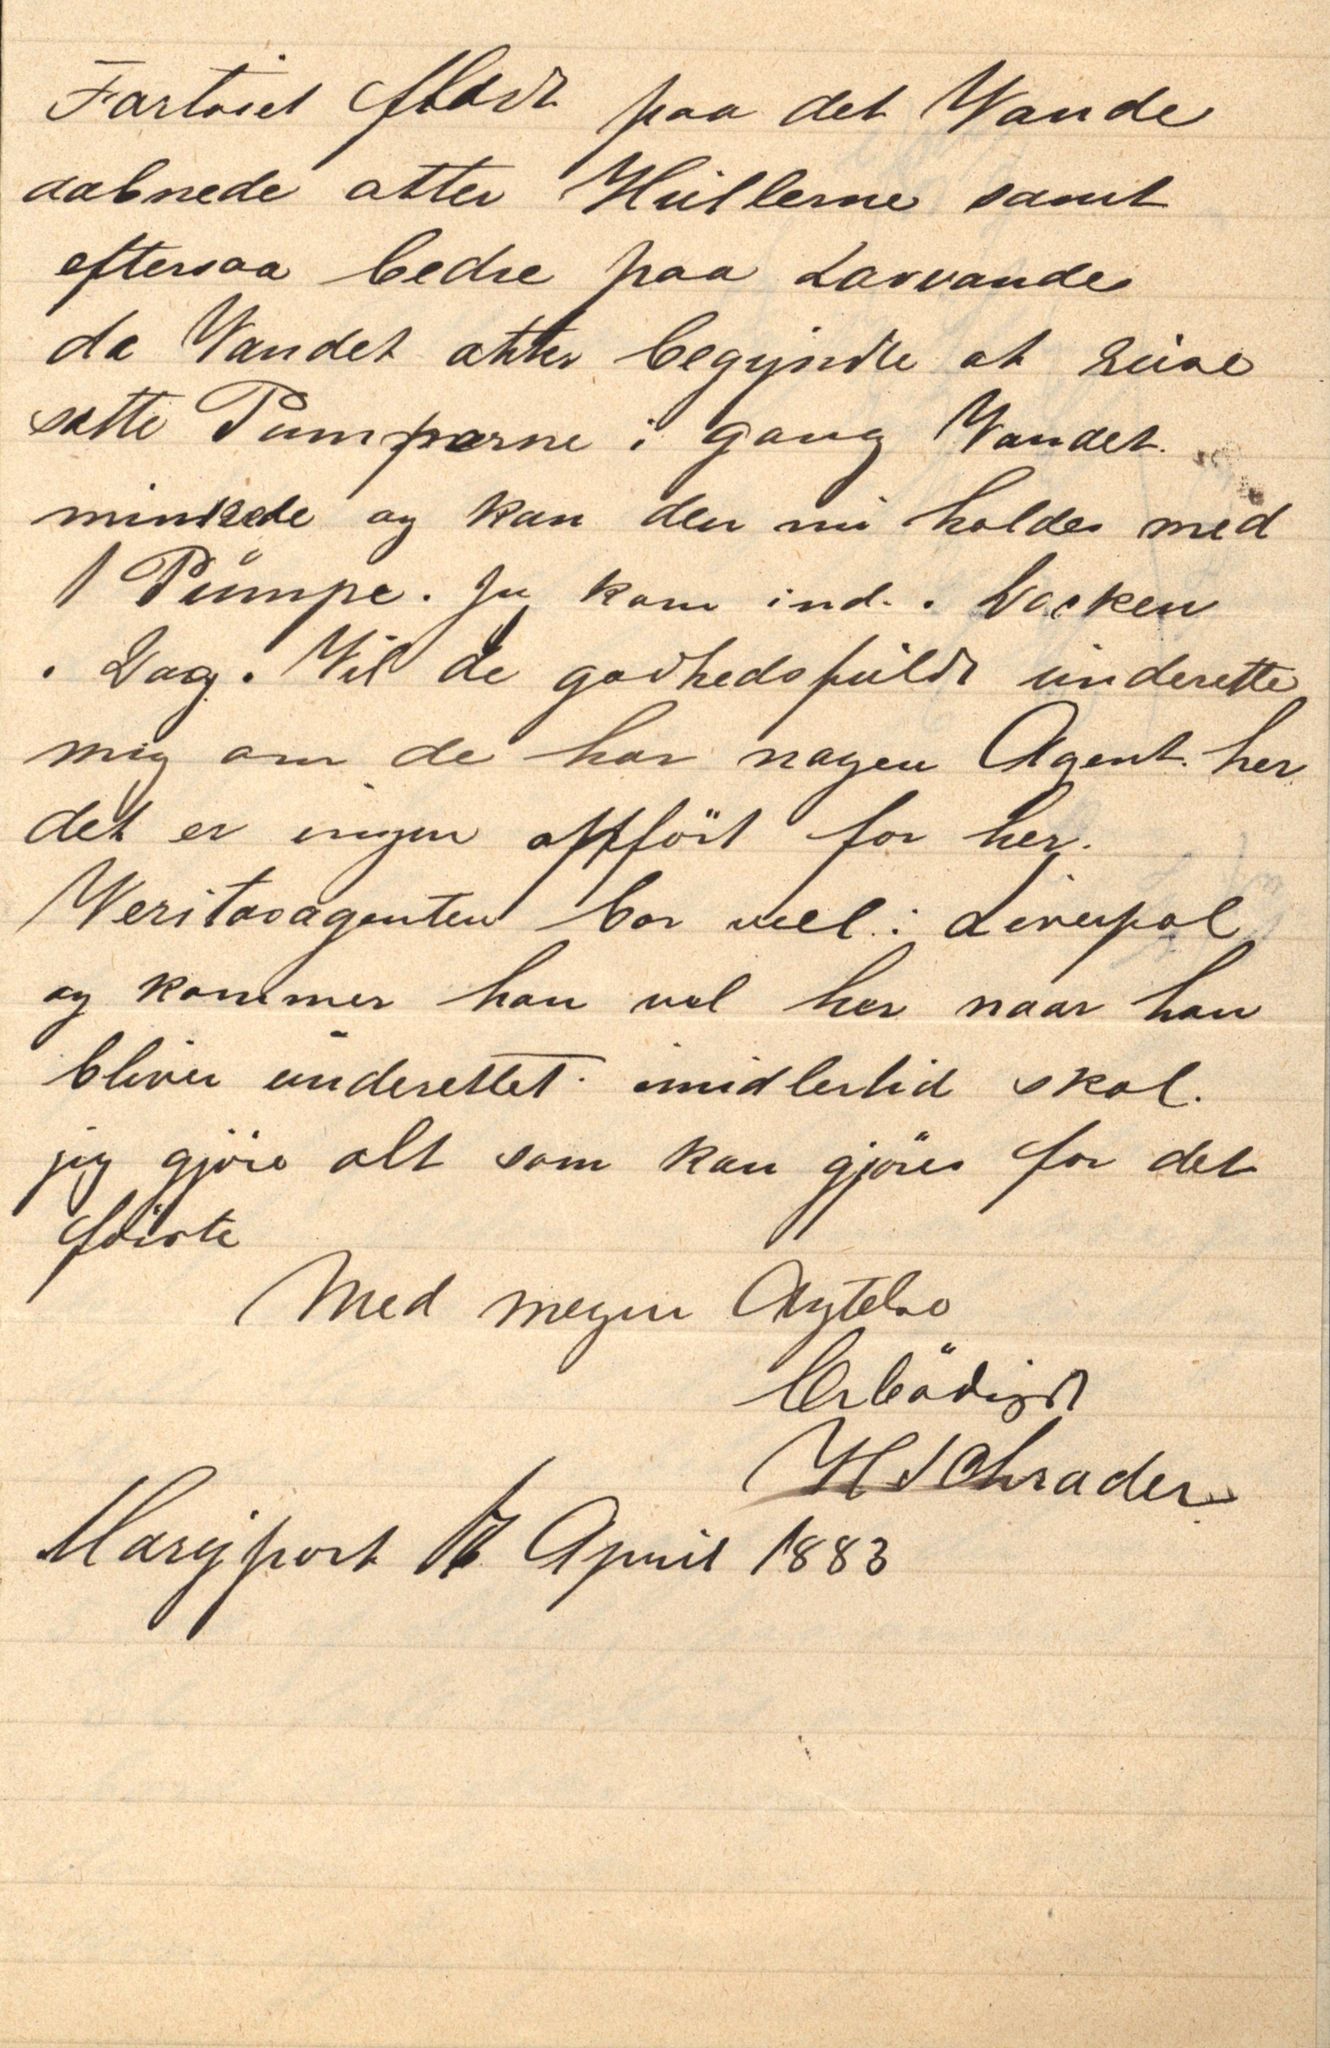 Fartöiet flödt paa det Vande
aabnede atter Hullerne samt
eftersaa bedre paa Lavvande
da Vandet atter begyndte at
satte Pumperne i gang Vandet
minkede og kan den nu holdes med
1 Pumpe. Jeg kom ind i Docken
i Dag. Vil de godhedsfuldt underette
mig om de har nogen Agent her
det er ingen opfört for her.
Veritasagenten bor vel i Liverpol
og kommer han vel her naar han
bliver underettet imidlertid skal
jeg gjöre alt som kan gjöres for det
förste
Med megen Agtelse
Erbödigst
H Schrader
Maryport April 1883